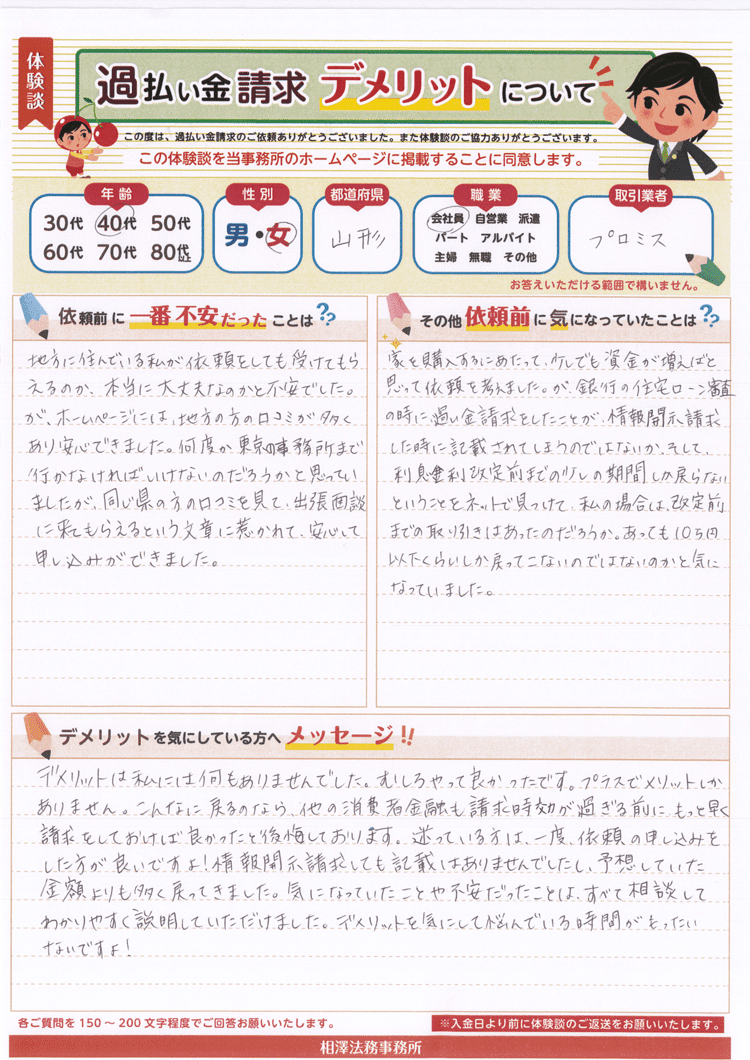 体験談
過払い金請求 デメリット について
この度は、過払い金請求のご依頼ありがとうございました。また体験談のご協力ありがとうございます。
この体験談を当事務所のホームページに掲載することに同意します。
年齢
30代 40代 50代
60代 70代 80代以上
性別
男・女
都道府県
山形
職業
会社員 自営業 派遣
パート アルバイト
主婦 無職 その他
取引業者
プロミス
お答えいただける範囲で構いません。
依頼前に一番不安だったことは??
地方に住んでいる私が依頼をしても受けてもら
えるのか、本当に大丈夫なのかと不安でした。
が、ホームページには、地方の方の口コミが多く
あり安心できました。何度か東京の事務所まで
行かなければいけないのだろうかと思ってい
ましたが、同じ県の方の口コミを見て、出張面談
に来てもらえるという文章に惹かれて、安心して
申し込みができました。
その他依頼前に気になっていたことは??
家を購入するにあたって、少しでも資金が増えればと
思って依頼を考えました。が、銀行の住宅ローン審査
の時に過払い金請求をしたことが、情報開示請求
した時に記載されてしまうのではないか、そして、
利息金利改定前までの少しの期間しか戻らない
ということをネットで見つけて、私の場合は、改定前
までの取り引きはあったのだろうか。あっても10万円
以下くらいしか戻ってこないのではないのかと気に
なっていました。
デメリットを気にしている方へメッセージ!!
デメリットは私には何もありませんでした。むしろやって良かったです。プラスでメリットしか
ありません。こんなに戻るのなら、他の消費者金融も請求時効が過ぎる前に、もっと早く
請求をしておけば良かったと後悔しております。迷っている方は、一度、依頼の申し込みを
した方が良いですよ!情報開示請求しても記載はありませんでしたし、予想していた
金額よりも多く戻ってきました。気になっていたことや不安だったことは、すべて相談して
わかりやすく説明していただけました。デメリットを気にして悩んでいる時間がもったい
ないですよ!
各ご質問を150～200文字程度でご回答お願いいたします。
※入金日より前に体験談のご返送をお願いいたします。
相澤法務事務所